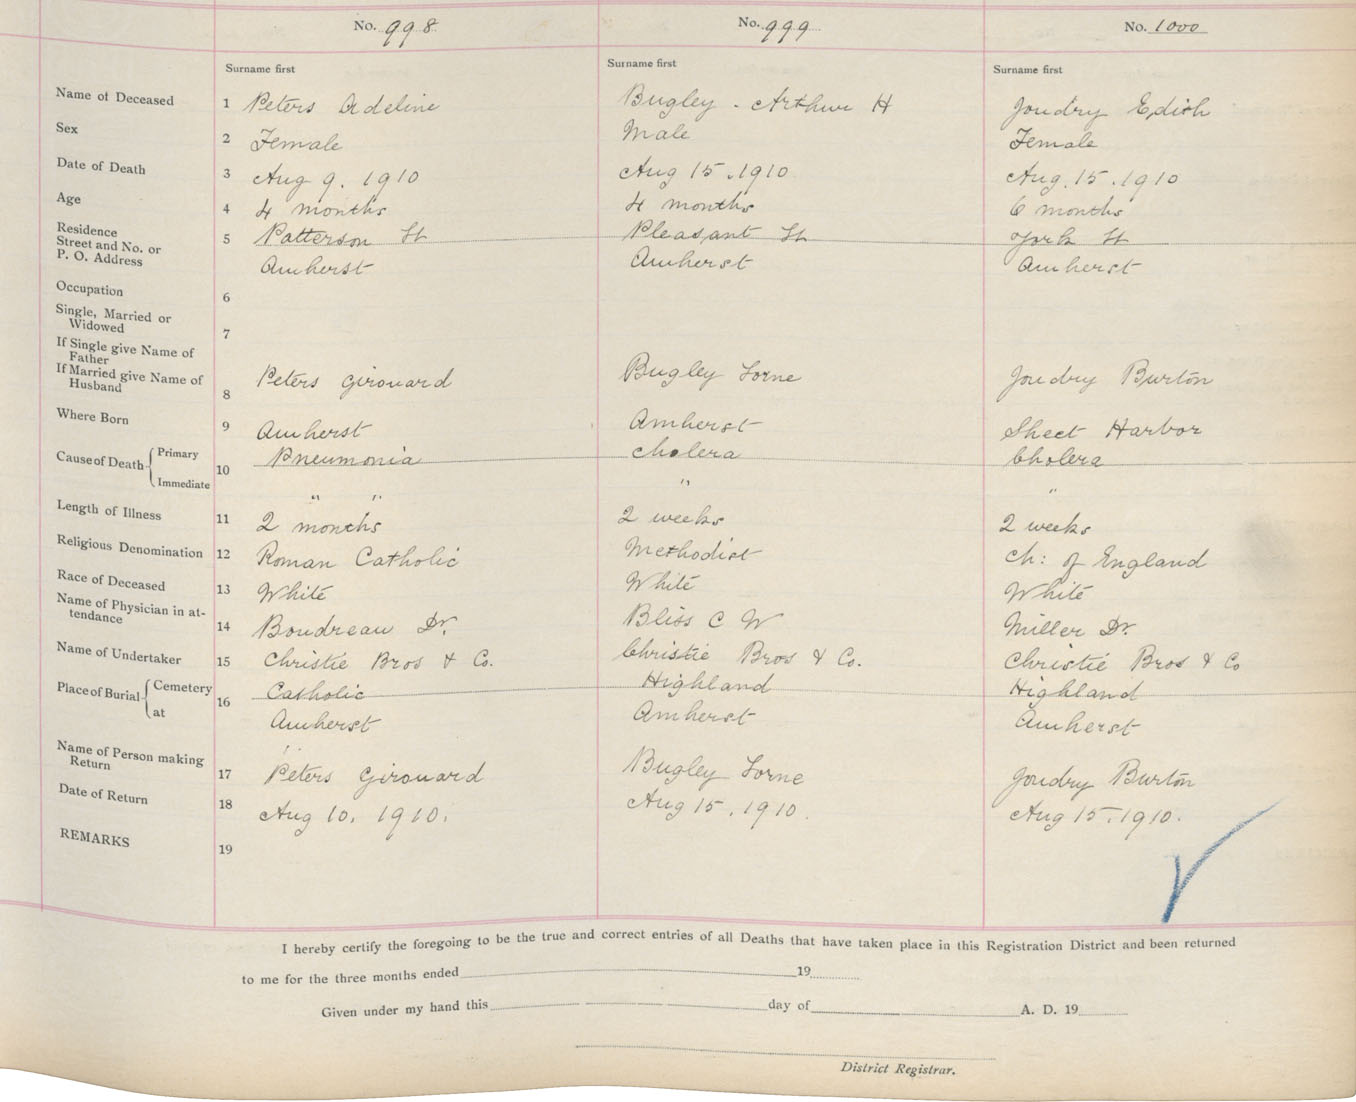 No. 998 No. 999 No. 1000
Surname first Surname first Surname first
Name of Deceased 1 Peters Adeline Bugley - Arthur H Joudry Edith
Sex 2 Female Male Female
Date of Death 3 Aug 9. 1910 Aug 15, 1910 Aug. 15. 1910
Age 4 4 months 4 months 6 months
Residence
Street and No. or 5 Patterson St Pleasant St York St
P. O. Address Amherst Amherst Amherst
Occupation 6
Single, Married or
Widowed 7
If Single give Name of
Father
If Married give Name of 8 Peters Girouard Bugley Lorne Joudry Burton
Husband
Where Born 9 Amherst Amherst Sheet Harbor
Cause of Death Primary 10 Pneumonia Cholera Cholera
Immediate " " " "
Length of Illness 11 2 months 2 weeks 2 weeks
Religious Denomination 12 Roman Catholic Methodist Ch: of England
Race of Deceased 13 White White White
Name of Physician in at-
tendance 14 Boudreau Dr. Bliss C W Miller Dr.
Name of Undertaker 15 Christie Bros & Co. Christie Bros & Co. Christie Bros & Co
Place of Burial Cemetery 16 Catholic Highland Highland
at Amherst Amherst Amherst
Name of Person making
Return 17 Peters Girouard Bugley Lorne Joudry Burton
Date of Return 18 Aug 10, 1910. Aug 15, 1910. Aug 15, 1910.
REMARKS 19
I hereby certify the foregoing to be the true and correct entries of all Deaths that have taken place in this Registration District and been returned
to me for the three months ended 19
Given under my hand this day of A. D. 19
District Registrar.